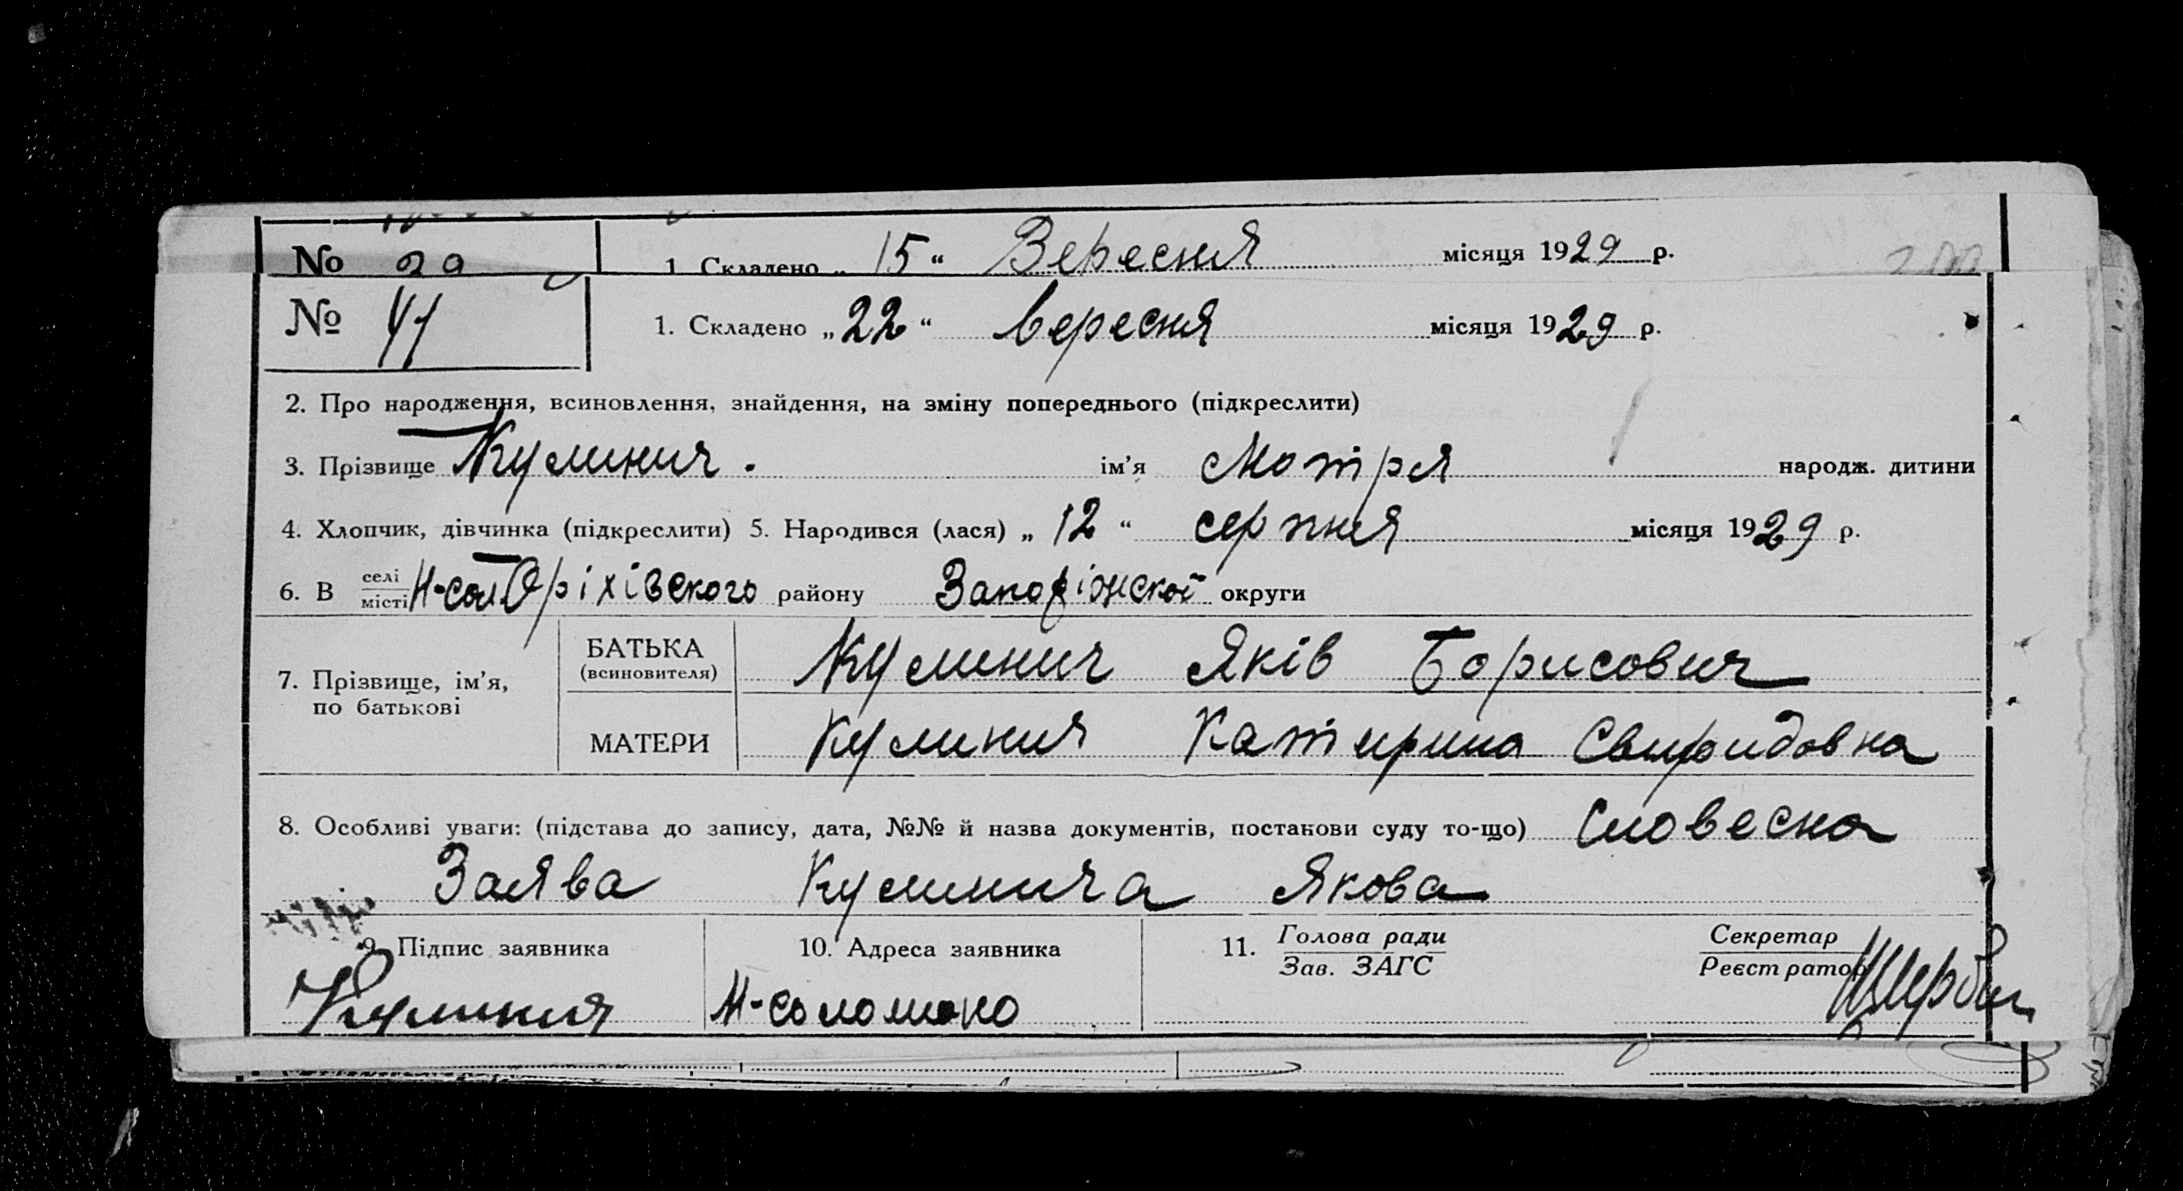 № 29 1. Складено „ 15 “ Вересня місяця 1929 р.
№ 41 1. Складено „ 22 “ вересня місяця 1929 р.
2. Про народження, всиновлення, знайдення, на зміну попереднього (підкреслити)
3. Прізвище Кулинич . ім’я Мотря народж. дитини
4. Хлопчик, дівчинка (підкреслити) 5. Народився (лася) „ 12 “ серпня місяця 1929 р.
6. В селі
місті Н-сол Оріхівского району Запоріжскої округи
7. Прізвище, ім’я,
по батькові
БАТЬКА
(всиновителя)
Кулинич Яків Борисович
МАТЕРИ Кулинич Катирина Свиридовна
8. Особливі уваги: (підстава до запису, дата, №№ й назва документів, постанови суду то-що) Словесна
Заява Кулинича Якова
9. Підпис заявника 10. Адреса заявника 11. Голова ради
Зав. ЗАГС
Секретар
Реєстратор
Кулинич Н-соломано